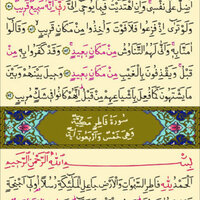 اَضِلُّ عَلٰى نَفْسِى وَاِنِ اهْتَدَيْتُ فَبِمَا يُوحِى اِلَىَّ رَبِّى اِنَّهُ سَمِيعٌ قَرِيبٌ
وَلَوْ تَرٰى اِذْ فَزِعُوا فَلَا فَوْتَ وَاُخِذُوا مِنْ مَكَانٍ قَرِيبٍ وَقَالُوا
اٰمَنَّا بِهِ وَاَنّٰى لَهُمُ التَّنَاوُشُ مِنْ مَكَانٍ بَعِيدٍ وَقَدْ كَفَرُوا بِهِ مِنْ
قَبْلُ وَيَقْذِفُونَ بِالْغَيْبِ مِنْ مَكَانٍ بَعِيدٍ وَحِيلَ بَيْنَهُمْ وَبَيْنَ
مَا يَشْتَهُونَ كَمَا فُعِلَ بِاَشْيَاعِهِمْ مِنْ قَبْلُ اِنَّهُمْ كَانُوا فِى شَكٍّ مُرِيبٍ
سُورَةُ فَاطِرٍ مَكِّيَّةٌ
وَهِىَ خَمْسٌ وَاَرْبَعُونَ اٰيَةً
بِسْمِ اللّٰهِ الرَّحْمٰنِ الرَّحِيمِ
اَلْحَمْدُ لِلّٰهِ فَاطِرِ السَّمٰوَاتِ وَالْاَرْضِ جَاعِلِ الْمَلٰئِكَةِ رُسُلًا اُولِى اَجْنِحَةٍ